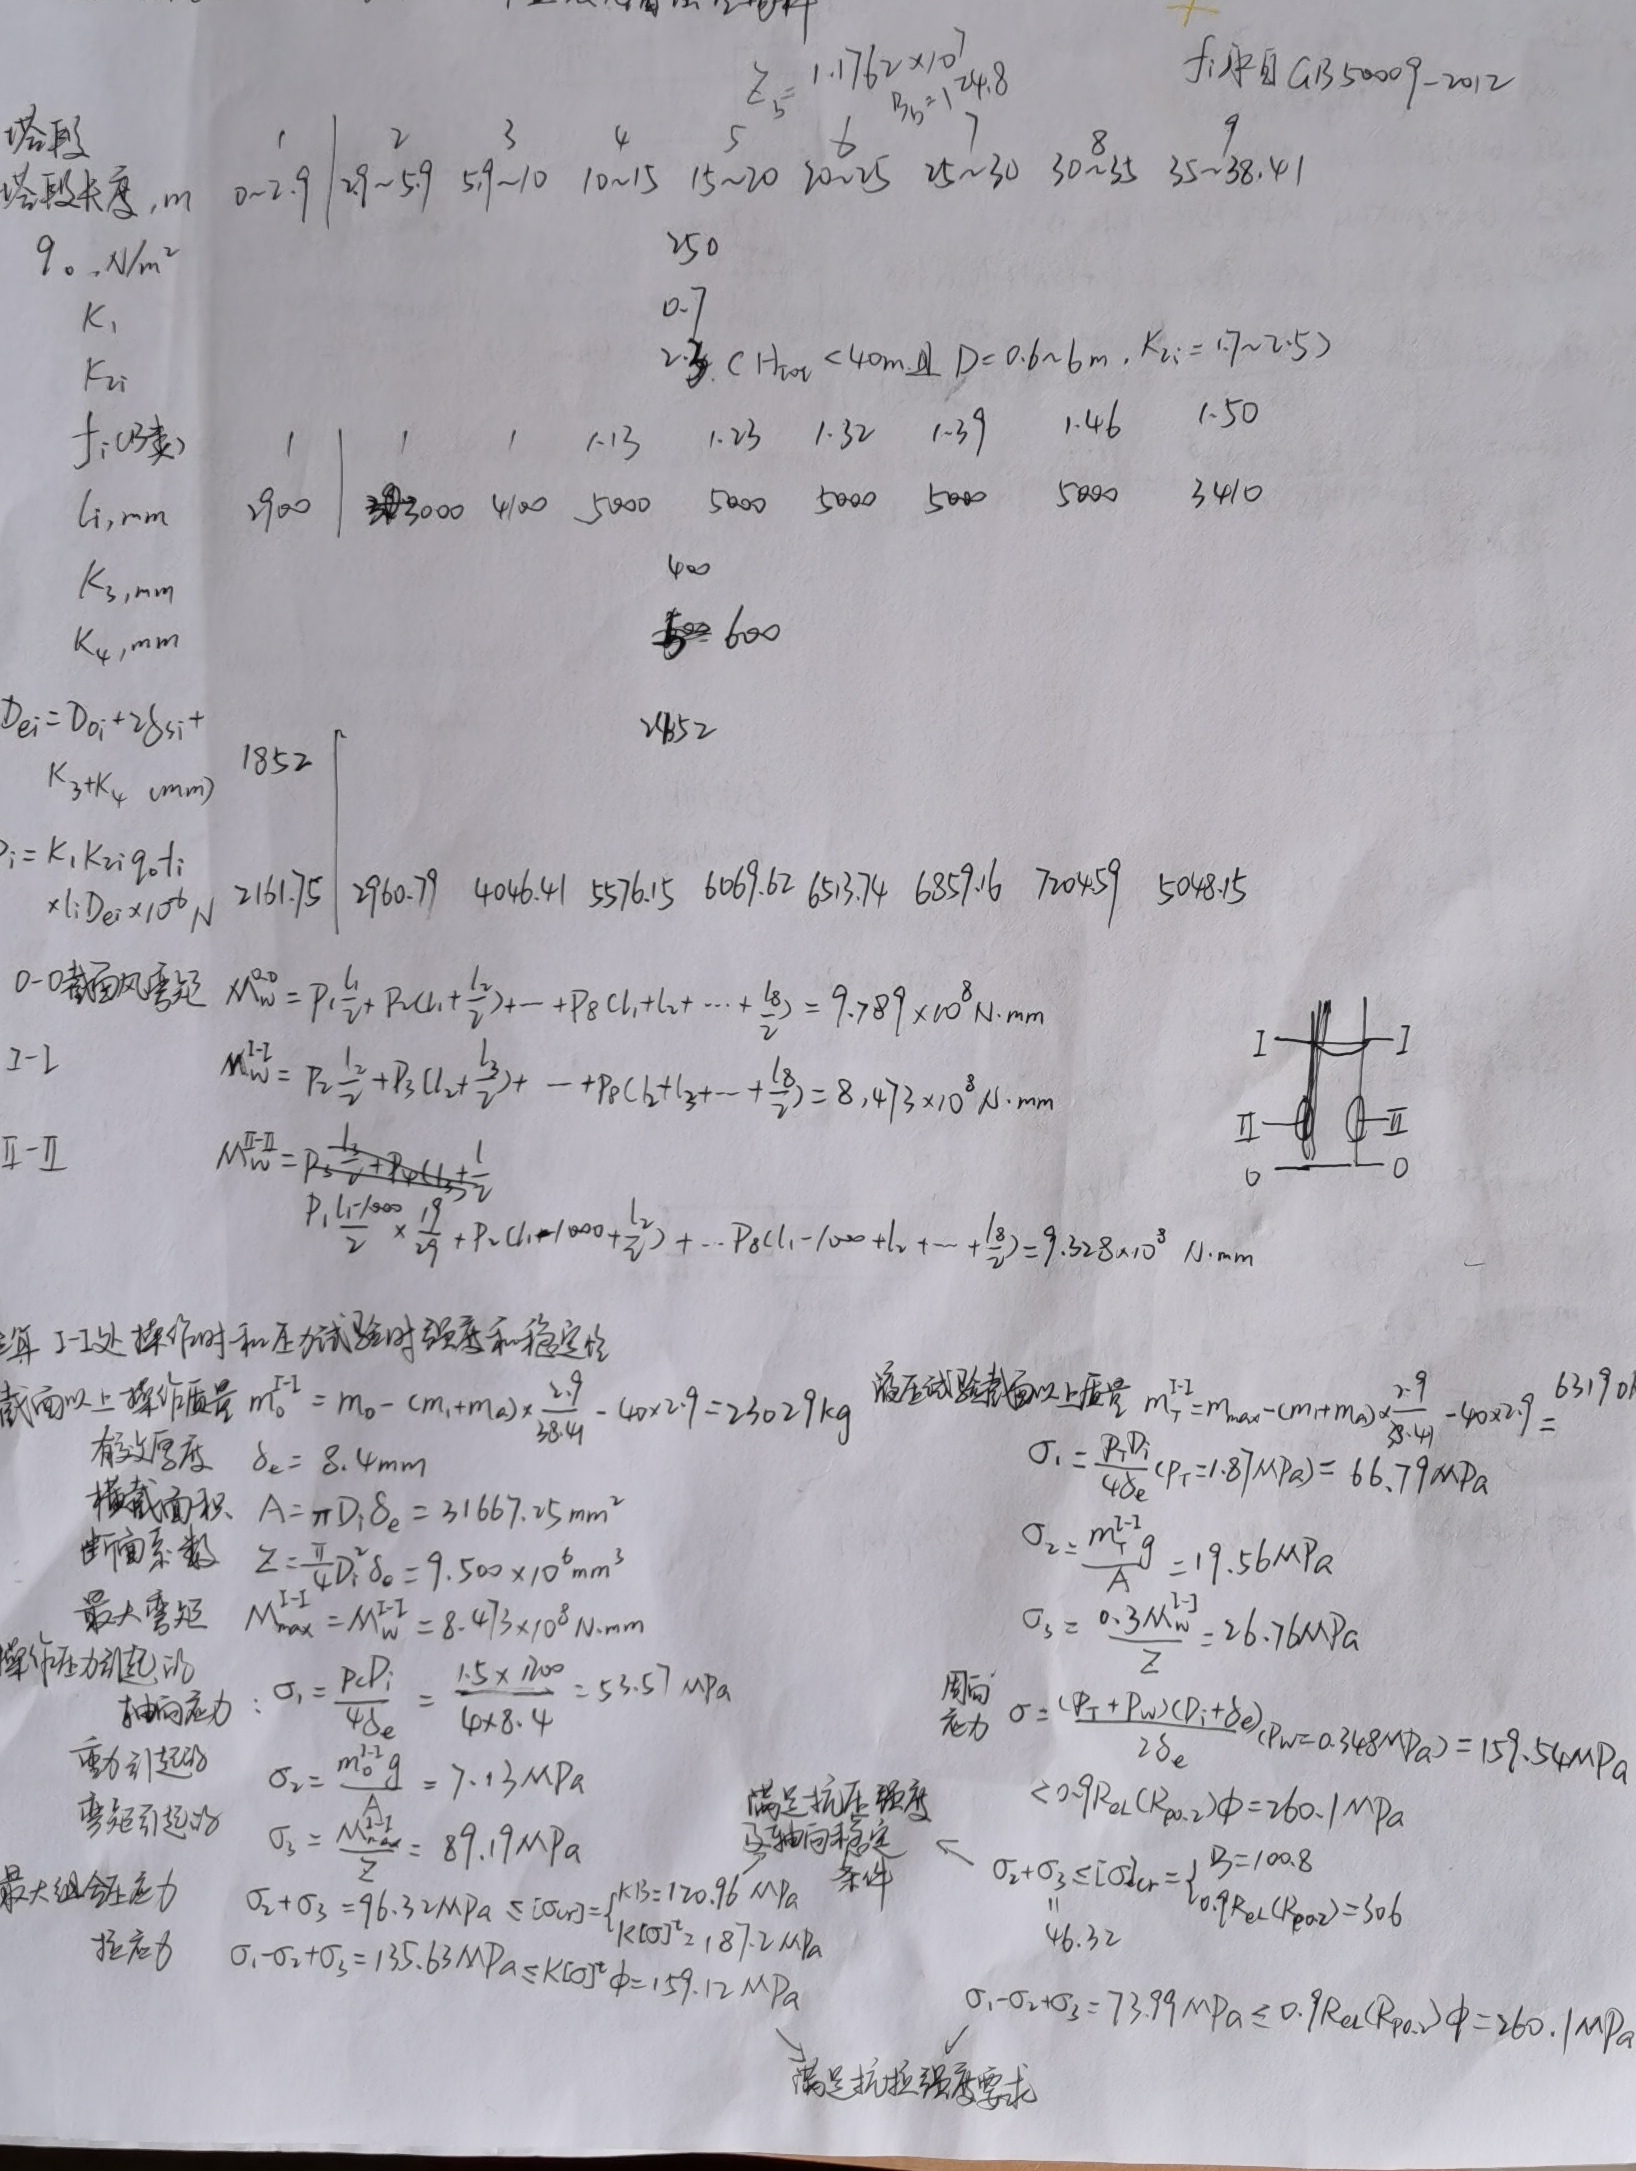 Z_b = 1.1762×10^7
B_b = 124.8
f_i来自GB50009-2012
塔段 1 2 3 4 5 6 7 8 9
塔段长度,m 0~2.9 2.9~5.9 5.9~10 10~15 15~20 20~25 25~30 30~35 35~38.41
q_0,N/m² 250
K_1 0.7
K_2i 2.3 (H_tot<40m且D=0.6~6m,K_2i=1.7~2.5)
f_i(B类) 1 1 1 1.13 1.23 1.32 1.39 1.46 1.50
l_i,mm 2900 3000 4100 5000 5000 5000 5000 5000 3410
K_3,mm 400
K_4,mm 600
D_ei=D_0i+2δ_si+
K_3+K_4 (mm) 1852 2452
P_i=K_1K_2iq_0f_i
×l_iD_ei×10^-6 N 2161.75 2960.79 4046.41 5576.15 6069.62 6513.74 6859.16 7204.59 5048.15
0-0截面风弯矩 M_W^{0-0}=P_1 l_1/2+P_2(l_1+l_2/2)+…+P_8(l_1+l_2+…+l_8/2)=9.789×10^8 N·mm
I-I M_W^{I-I}=P_2 l_2/2+P_3(l_2+l_3/2)+…+P_8(l_2+l_3+…+l_8/2)=8.473×10^8 N·mm
I I
II II
0 0
II-II M_W^{II-II}=
P_1 (l_1-1000)/2×19/29+P_2(l_1-1000+l_2/2)+…P_8(l_1-1000+l_2+…+l_8/2)=9.328×10^8 N·mm
算 I-I处操作时和压力试验时强度和稳定性
截面以上操作质量 m_0^{I-I}=m_0-(m_1+m_a)×2.9/38.41-40×2.9=23029kg
有效厚度 δ_e=8.4mm
横截面积 A=πD_iδ_e=31667.25mm²
断面系数 Z=π/4 D_i²δ_e=9.500×10^6mm³
最大弯矩 M_max^{I-I}=M_W^{I-I}=8.473×10^8N·mm
操作压力引起的
轴向应力: σ_1=p_cD_i/4δ_e=1.5×1200/4×8.4=53.57MPa
重力引起的 σ_2=m_0^{I-I}g/A=7.13MPa
弯矩引起的 σ_3=M_max^{I-I}/Z=89.19MPa
最大组合压应力 σ_2+σ_3=96.32MPa≤[σ_cr]={KB=120.96MPa
K[σ]^t=187.2MPa
拉应力 σ_1-σ_2+σ_3=135.63MPa≤K[σ]^tφ=159.12MPa
液压试验截面以上质量 m_T^{I-I}=m_max-(m_1+m_a)×2.9/38.41-40×2.9=63190
σ_1=P_TD_i/4δ_e(P_T=1.87MPa)=66.79MPa
σ_2=m_T^{I-I}g/A=19.56MPa
σ_3=0.3M_W^{I-I}/Z=26.76MPa
周向应力 σ=(P_T+P_W)(D_i+δ_e)/2δ_e(P_W=0.348MPa)=159.54MPa
<0.9R_eL(R_p0.2)φ=260.1MPa
满足抗压强度
及轴向稳定
条件
σ_2+σ_3≤[σ]_cr={B=100.8
0.9R_eL(R_p0.2)=306
=46.32
σ_1-σ_2+σ_3=73.99MPa≤0.9R_eL(R_p0.2)φ=260.1MPa
满足抗拉强度要求